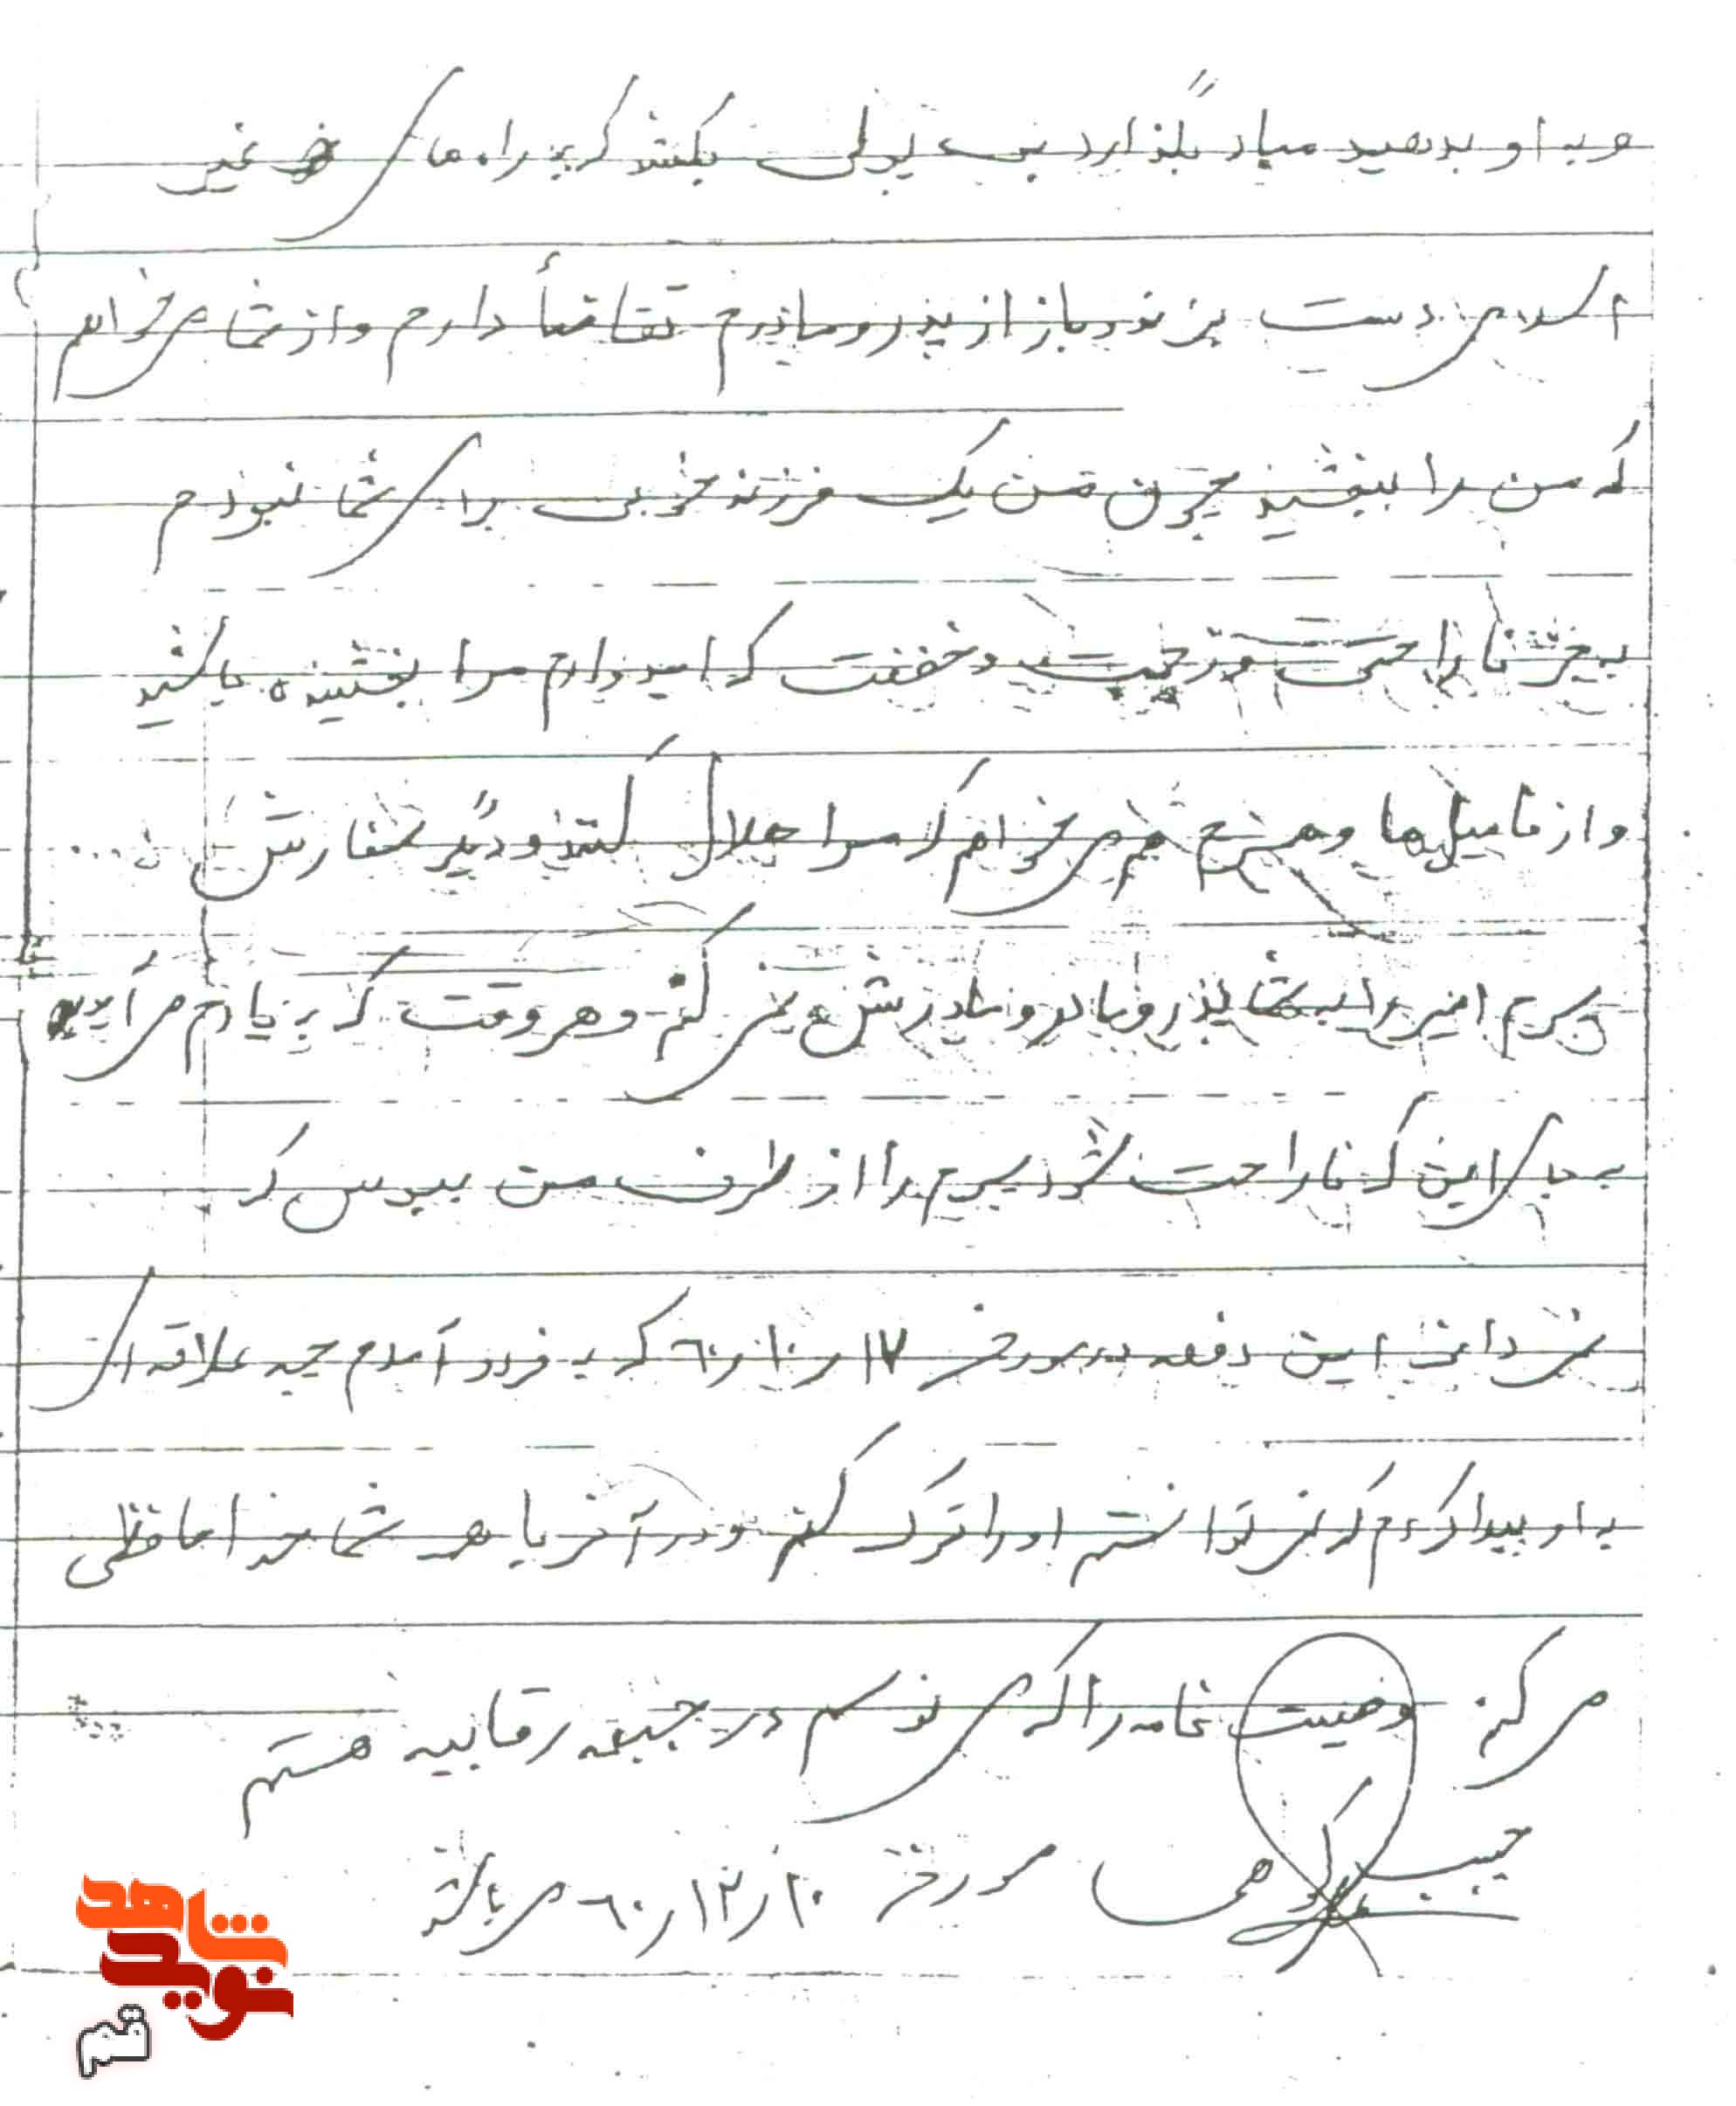 و به او بدهید مبادا بگذارد بی پولی بکشد که به راه های غیر
اسلامی دست بزند و باز از پدر و مادرم تقاضأ دارم و از شما می خواهم
که من را ببخشید چون من یک فرزند خوبی برای شما نبودم
بجز ناراحتی و زحمت و خفت که امیدوارم مرا بخشیده باشید
و از فامیل ها و هم می خواهم که مرا حلال کنند و دیگر سفارش
پسرم امیر را به شما پدر و مادر و مادرش نمی کنم و هر وقت که به یادم می آیید
به جای این که ناراحت شوید پسرم را از طرف من ببوس که
نمی دانی این دفعه در مورخه ۱۷ر۱۰ر۶۰ که به فردو آمدم چه علاقه ای
به او پیدا کردم که نمی توانستم او را ترک کنم و در آخر با همه شما خداحافظی
می کنم وصیت نامه را که می نویسم در جبهه رقابیه هستم
حبیب مورخه ۲۰ر۱۲ر۶۰ می باشد
نوید شاهد
قم